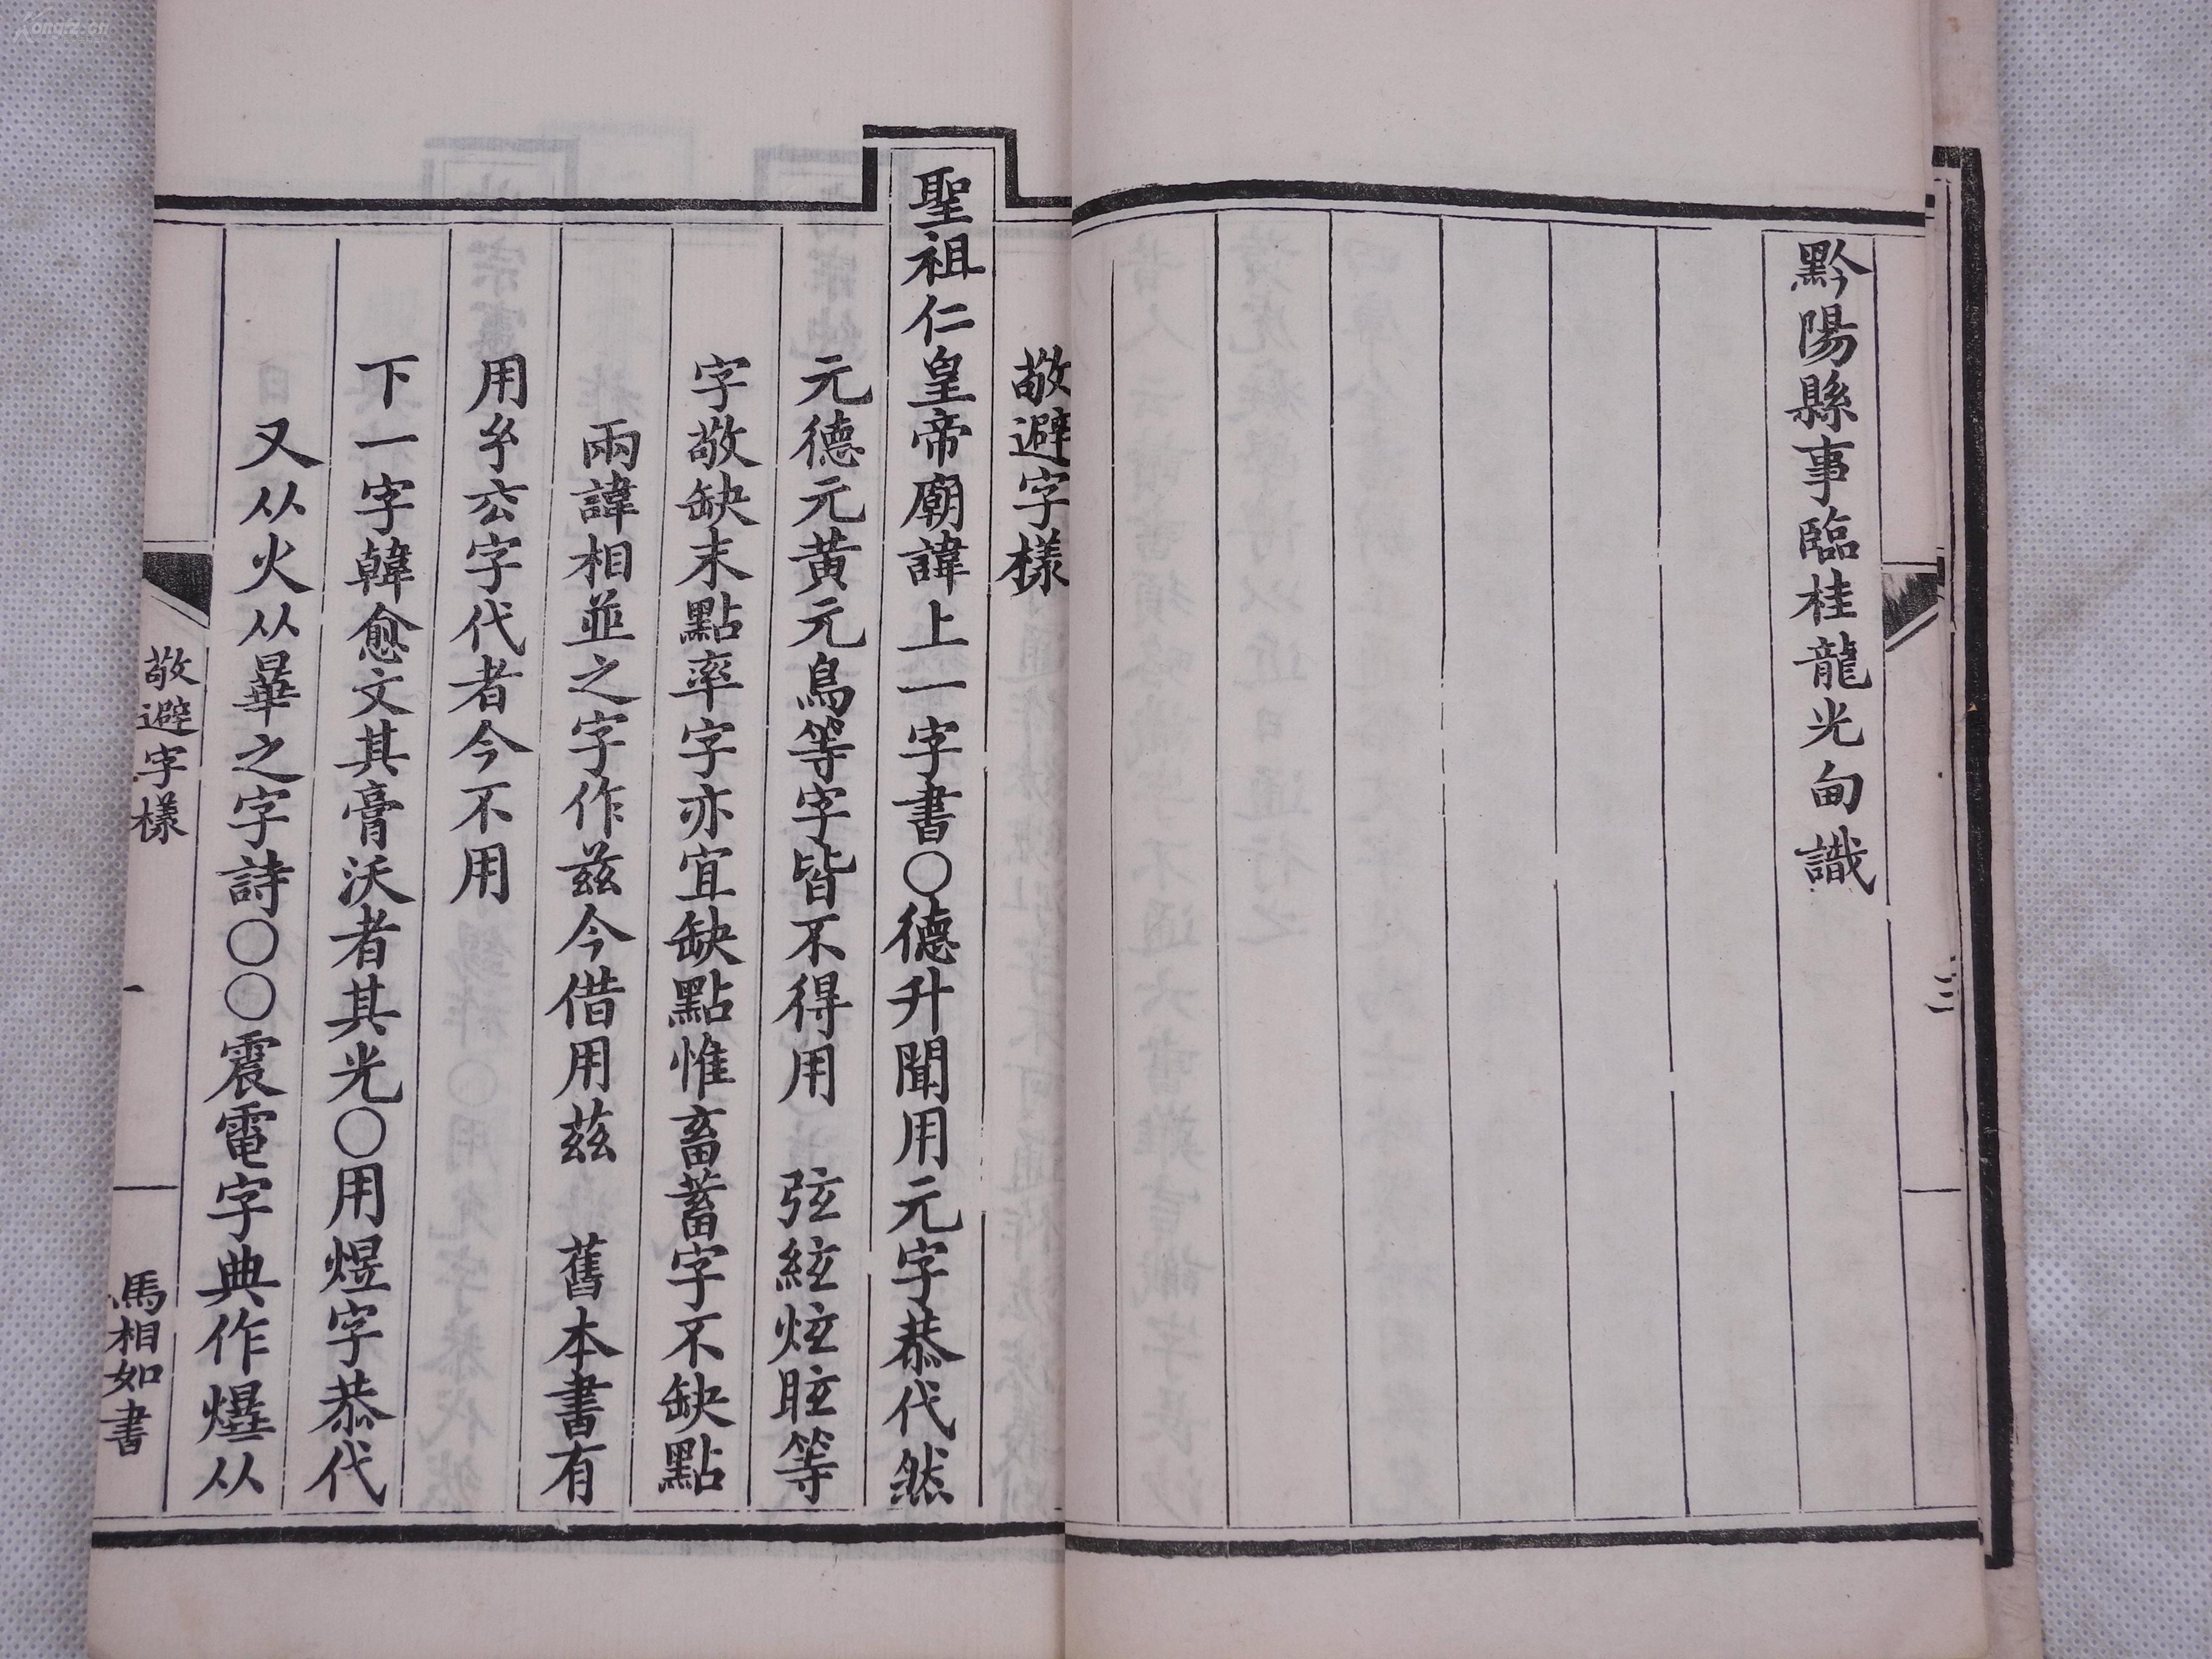 黔陽縣事臨桂龍光甸識
三
敬避字樣
聖祖仁皇帝廟諱上一字書〇德升聞用元字恭代然
元德元黃元鳥等字皆不得用　弦絃炫眩等
字敬缺末點率字亦宜缺點惟畜蓄字不缺點
兩諱相並之字作兹今借用茲　舊本書有
用𢆯厷字代者今不用
下一字韓愈文其膏沃者其光〇用煜字恭代
又从火从曅之字詩〇〇震電字典作爗从
敬避字樣
一
馬相如書
Kongfz.cn